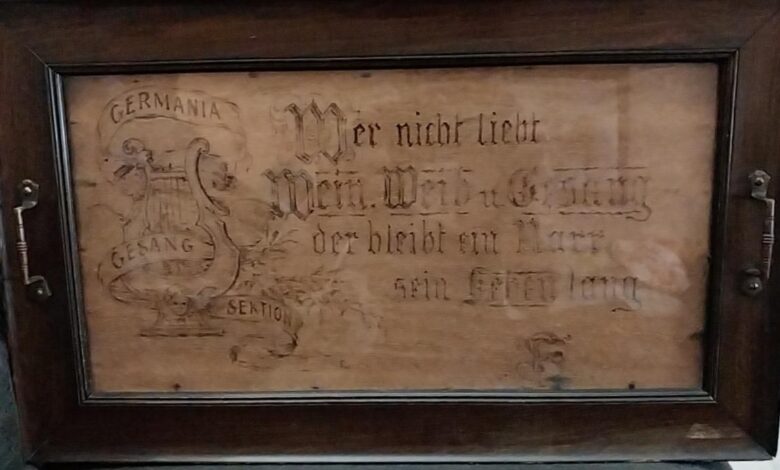 GERMANIA
GESANG
SEKTION
Wer nicht liebt
Wein. Weib u Gesang
der bleibt ein Narr
sein Leben lang